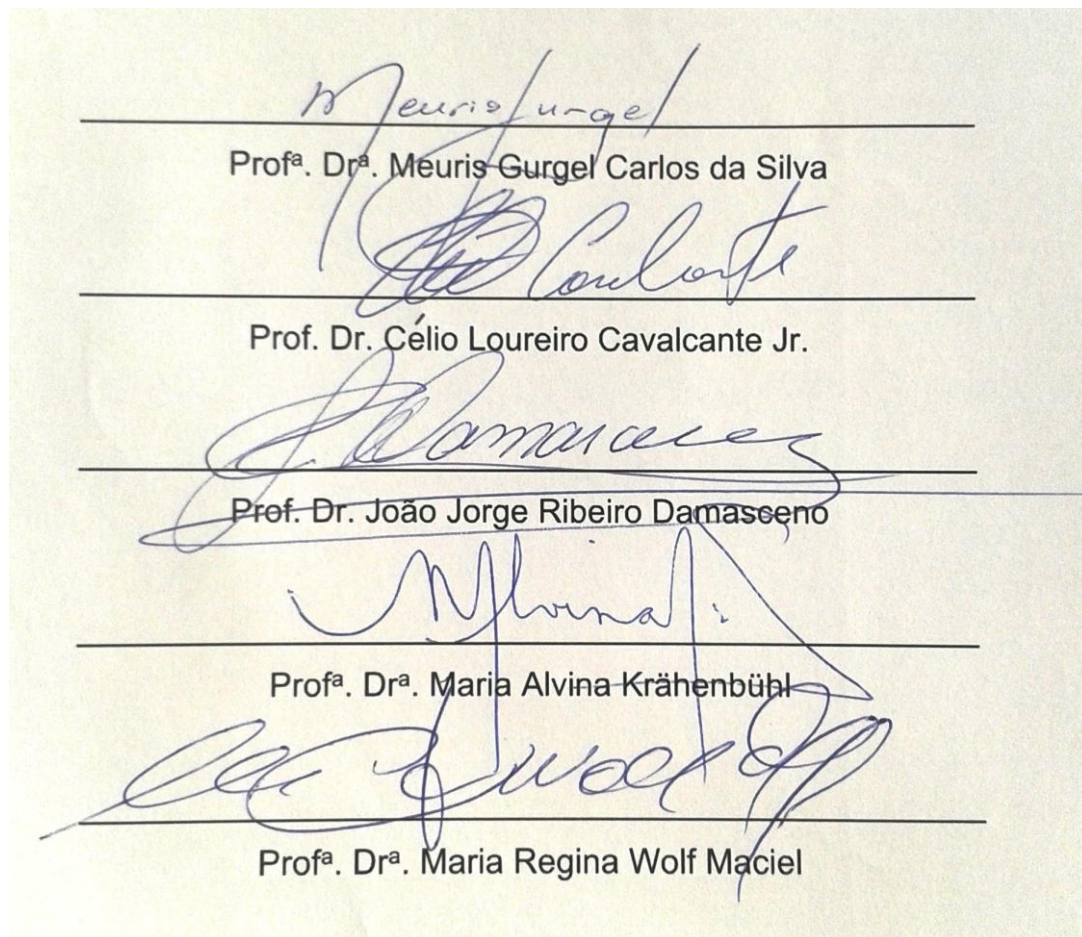 Meuris Gurgel
Profª. Drª. Meuris Gurgel Carlos da Silva
Prof. Dr. Célio Loureiro Cavalcante Jr.
Damasceno
Prof. Dr. João Jorge Ribeiro Damasceno
Profª. Drª. Maria Alvina Krähenbühl
Profª. Drª. Maria Regina Wolf Maciel